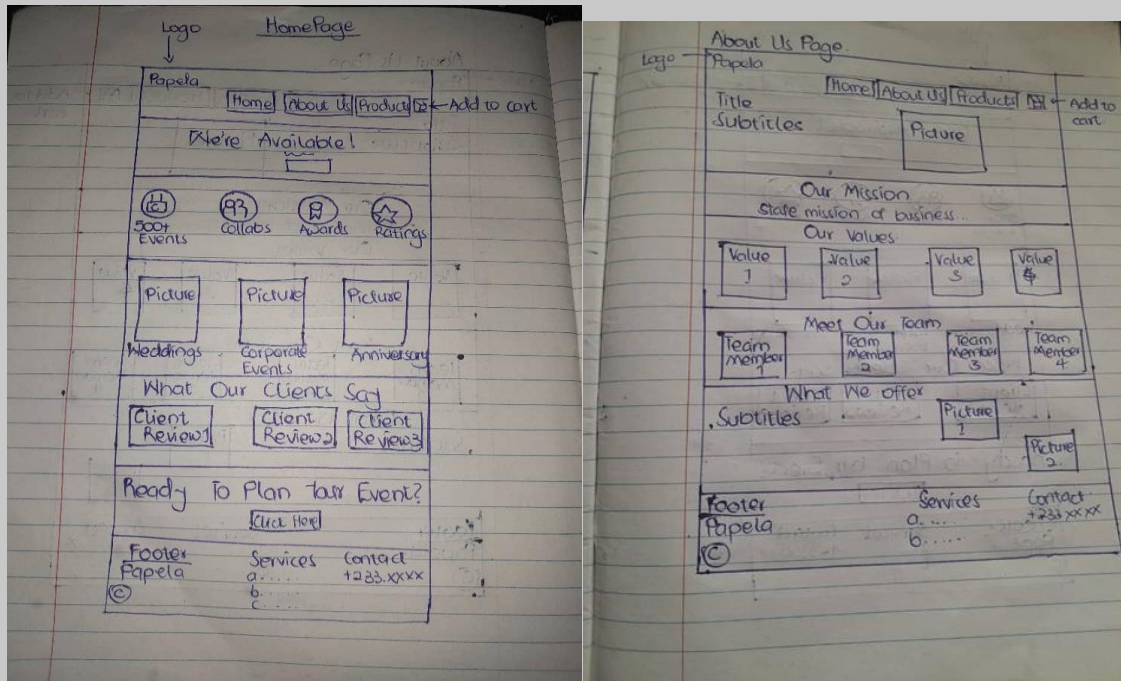 Logo
HomePage
Papela
Home About Us Product Add to cart
We're Available!
500+ Events
Collabs
Awards
Ratings
Picture
Picture
Picture
Weddings
Corporate Events
Anniversary
What Our Clients Say
Client Review 1
Client Review 2
Client Review 3
Ready To Plan Your Event?
Click Here
Footer
Papela
©
Services
a......
b......
c......
Contact
+233.xxxx
About Us Page.
Logo
Papela
Home About Us Products Add to cart
Title
Subtitles
Picture
Our Mission
State mission of business...
Our Values
Value 1
Value 2
Value 3
Value 4
Meet Our Team
Team Member 1
Team Member 2
Team Member 3
Team Member 4
What We offer
Subtitles
Picture 1
Picture 2.
Footer
Papela
©
Services
a. ....
b......
Contact
+233.xxxx